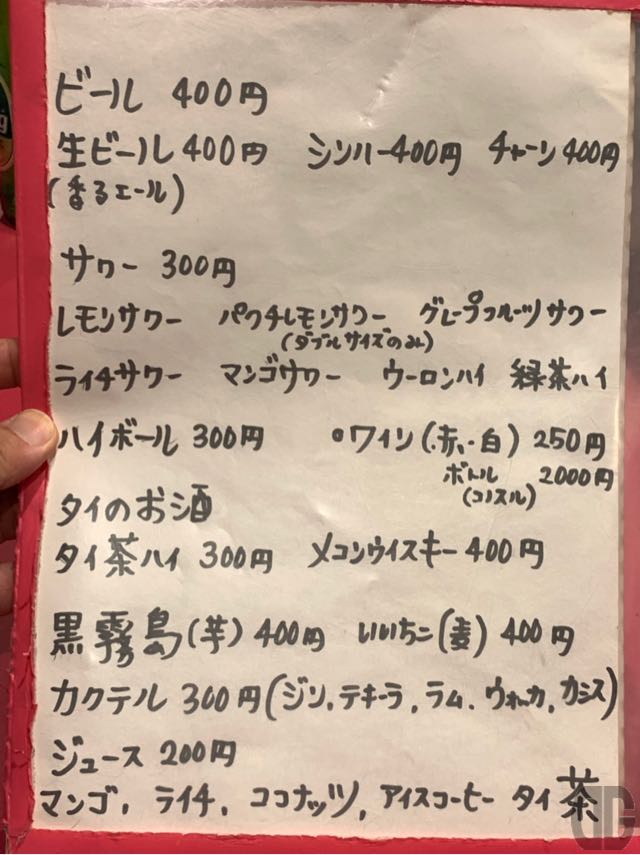 ビール 400円
生ビール 400円 シンハー 400円 チャーン 400円
(香るエール)
サワー 300円
レモンサワー パクチレモンサワー グレープフルーツサワー
(ダブルサイズのみ)
ライチサワー マンゴサワー ウーロンハイ 緑茶ハイ
ハイボール 300円 ワイン(赤・白) 250円
ボトル 2000円
(コノスル)
タイのお酒
タイ茶ハイ 300円 メコンウイスキー 400円
黒霧島(芋) 400円 いいちこ(麦) 400円
カクテル 300円(ジン, テキーラ, ラム, ウォッカ, カシス)
ジュース 200円
マンゴ, ライチ, ココナッツ, アイスコーヒー タイ茶